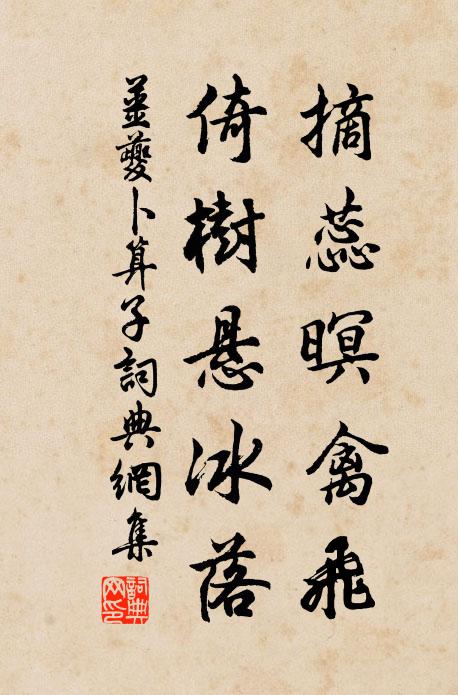 摘蕊暝禽飛
倚樹悬冰落
姜夔卜算子詞典網集
詞典網印